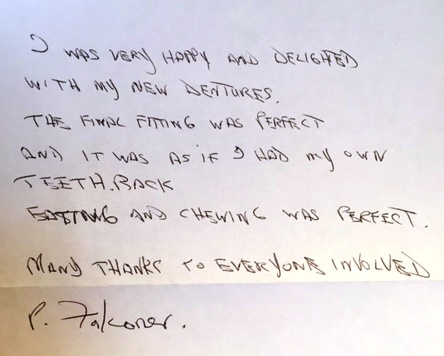 I WAS VERY HAPPY AND DELIGHTED
WITH MY NEW DENTURES.
THE FINAL FITTING WAS PERFECT
AND IT WAS AS IF I HAD MY OWN
TEETH.BACK
EATTING AND CHEWING WAS PERFECT.
MANY THANKS TO EVERYONE INVOLVED
P. Falconer.